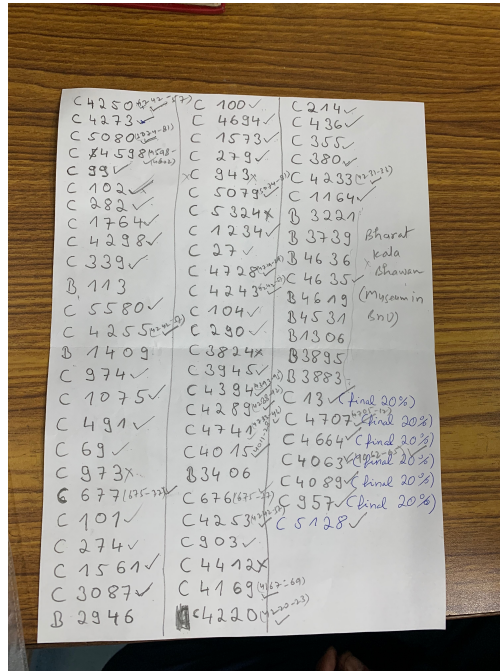 C 4250 (4242-57)
C 4273 ✓
C 5080 (5074-81)
C 4598 (4598-4602)
C 99 ✓
C 102 ✓
C 282 ✓
C 1764 ✓
C 4298 ✓
C 339 ✓
B 113
C 5580 ✓
C 4255 (4242-57)
B 1409
C 974 ✓
C 1075 ✓
C 491 ✓
C 69 ✓
C 973 x
C 677 (675-77)
C 101 ✓
C 274 ✓
C 1561 ✓
C 3087 ✓
B 2946
C 100 ✓
C 4694 ✓
C 1573 ✓
C 279 ✓
x C 943 x
C 5079 ✓
C 5324 x
C 1234 ✓
C 27 ✓
C 4728 ✓
C 4243 ✓
C 104 ✓
C 290 ✓
C 3824 x
C 3945 ✓
C 4394
C 4289
C 4741
C 4015
B 3406
C 676 (675-77)
C 4253 ✓
C 903 ✓
C 4412 x
C 4169 (4167-69)
C 4220 (4220-23)
C 214 ✓
C 436 ✓
C 355 ✓
C 380 ✓
C 4233 (4231-33)
C 1164 ✓
B 3221
B 3739
B 4636
C 4635 ✓
B 4619
B 4531
B 1306
B 3895
B 3883
Bharat
Kala
Bhawan
(Museum in
BHU)
C 13 ✓ (final 20%)
C 4707 ✓ (final 20%)
C 4664 ✓ (final 20%)
C 4063 ✓ (final 20%)
C 4089 ✓ (final 20%)
C 957 ✓ (final 20%)
C 5128 ✓